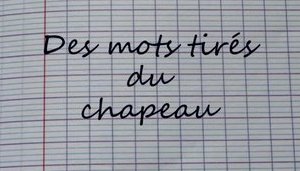 Des mots tirés
du
chapeau